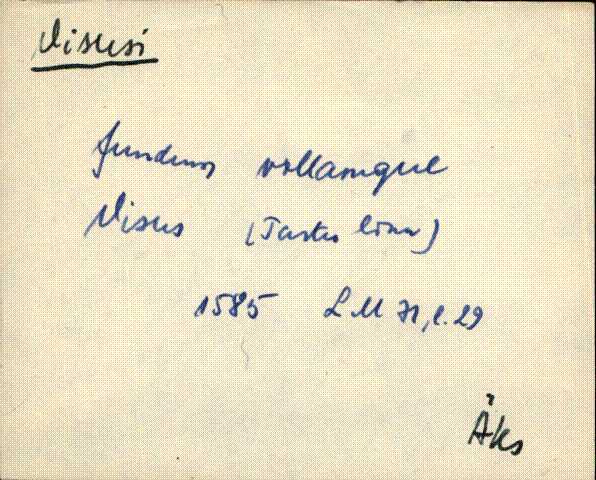 Visusi
fundum villamque
Visus (Tartu linn)
1585 LM II, l. 29
Äks